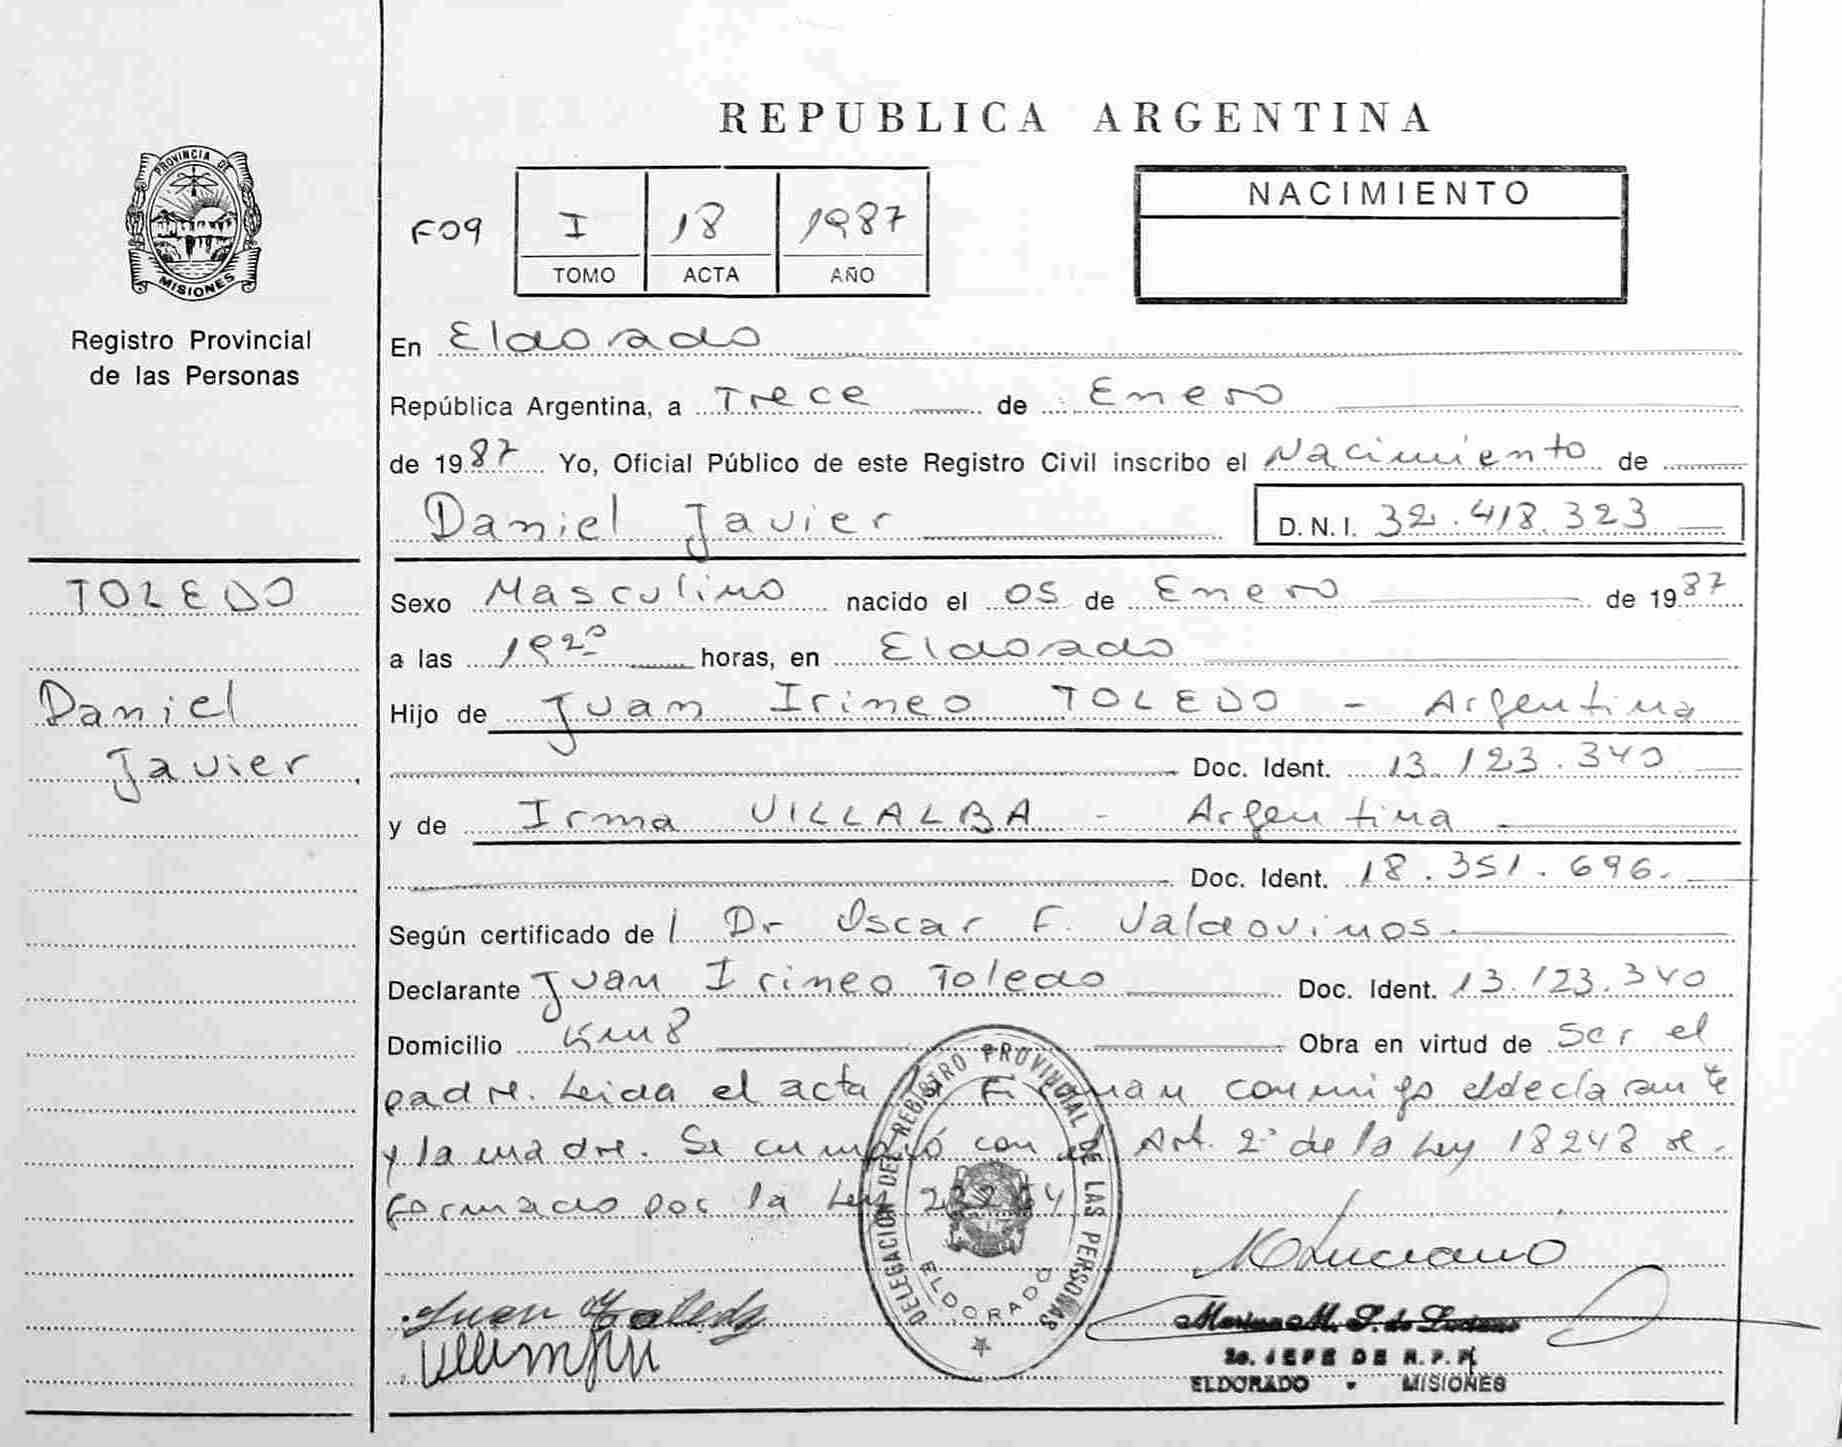 REPUBLICA ARGENTINA
PROVINCIA DE
MISIONES
Registro Provincial
de las Personas
F09
I 18 1987
TOMO ACTA AÑO
NACIMIENTO
En Eldorado
República Argentina, a Trece de Enero
de 1987 Yo, Oficial Público de este Registro Civil inscribo el Nacimiento de
Daniel Javier D.N.I. 32.418.323
TOLEDO
Daniel
Javier
Sexo Masculino nacido el 05 de Enero de 1987
a las 1920 horas, en Eldorado
Hijo de Juan Irineo TOLEDO - Argentina
Doc. Ident. 13.123.340
y de Irma VILLALBA - Argentina
Doc. Ident. 18.351.696.
Según certificado de l Dr Oscar F. Valdovinos.
Declarante Juan Irineo Toledo Doc. Ident. 13.123.340
Domicilio Km 8 Obra en virtud de Ser el
padre. Leida el acta la Firman conmigo el declarante
y la madre. Se cumplió con el Art. 2º de la Ley 18248 re-
formado por la Ley
DELEGACION DEL REGISTRO PROVINCIAL DE LAS PERSONAS
ELDORADO
Luciano
Juan Toledo
M. S. de Luciano
2o. JEFE DE R.P.P.
ELDORADO - MISIONES